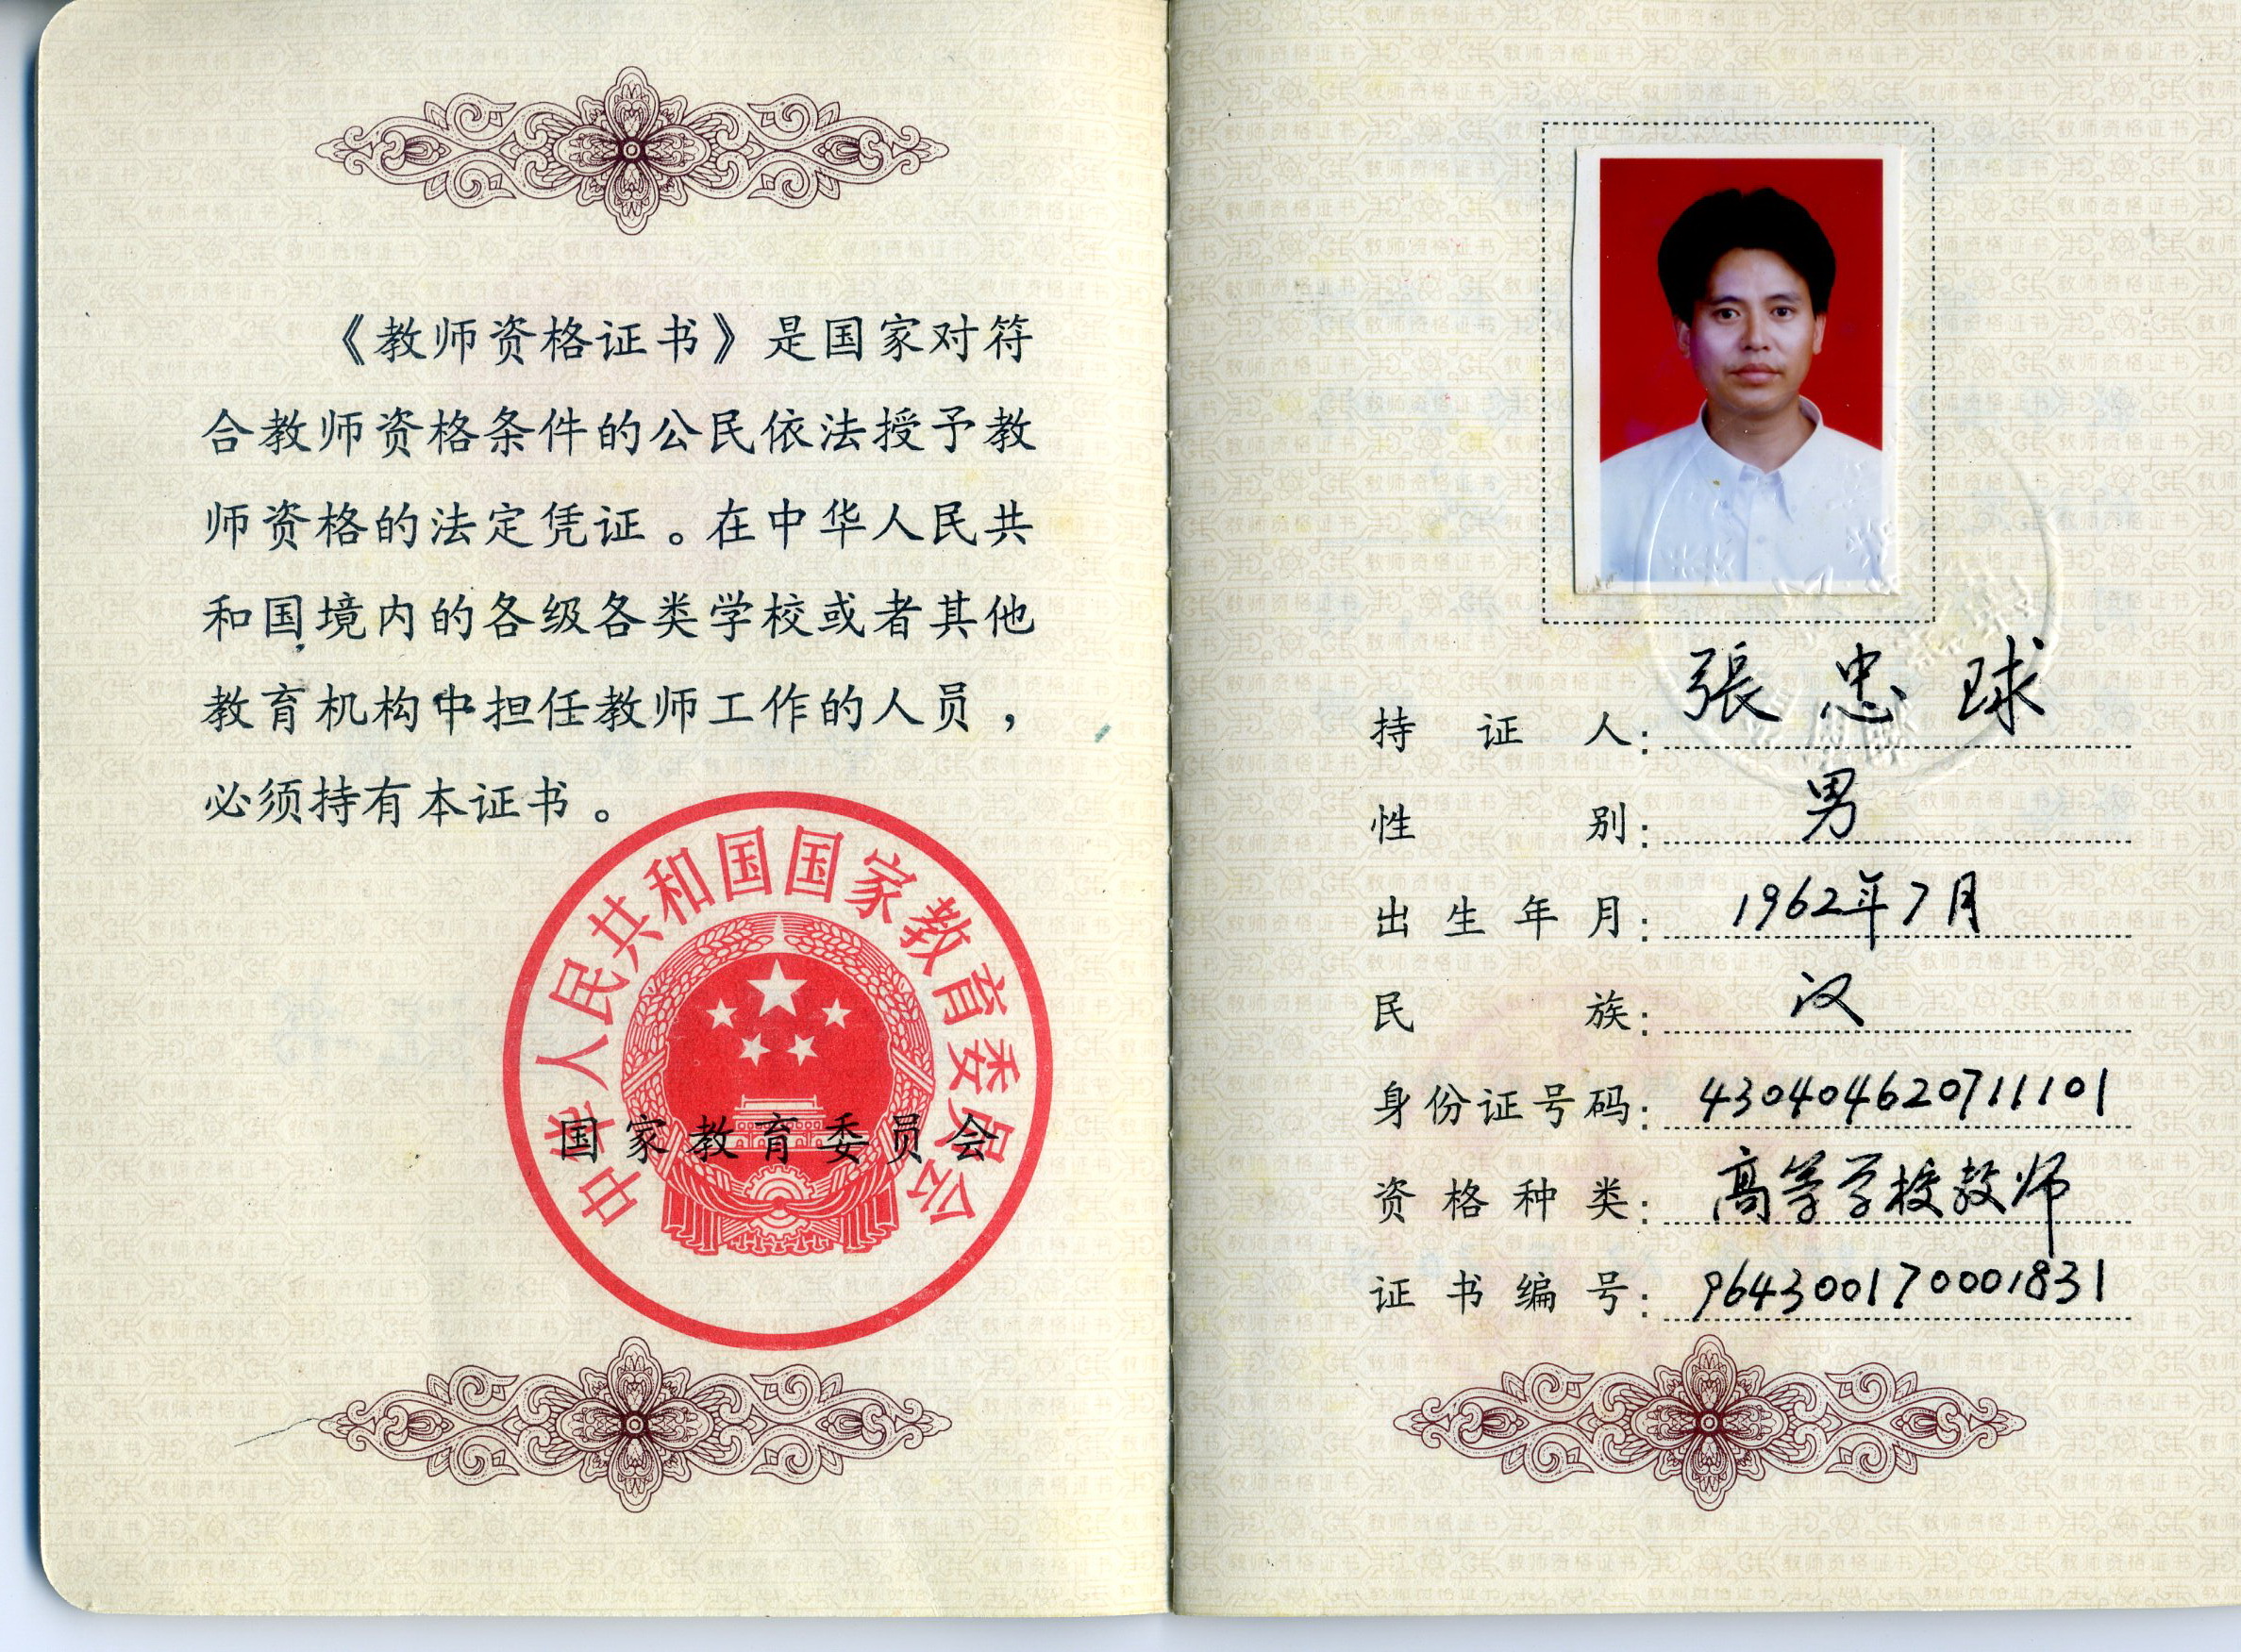 《教师资格证书》是国家对符
合教师资格条件的公民依法授予教
师资格的法定凭证。在中华人民共
和国境内的各级各类学校或者其他
教育机构中担任教师工作的人员，
必须持有本证书。
中华人民共和国国家教育委员会
国家教育委员会
持证人：張忠球
性别：男
出生年月：1962年7月
民族：汉
身份证号码：430404620711101
资格种类：高等学校教师
证书编号：964300170001831